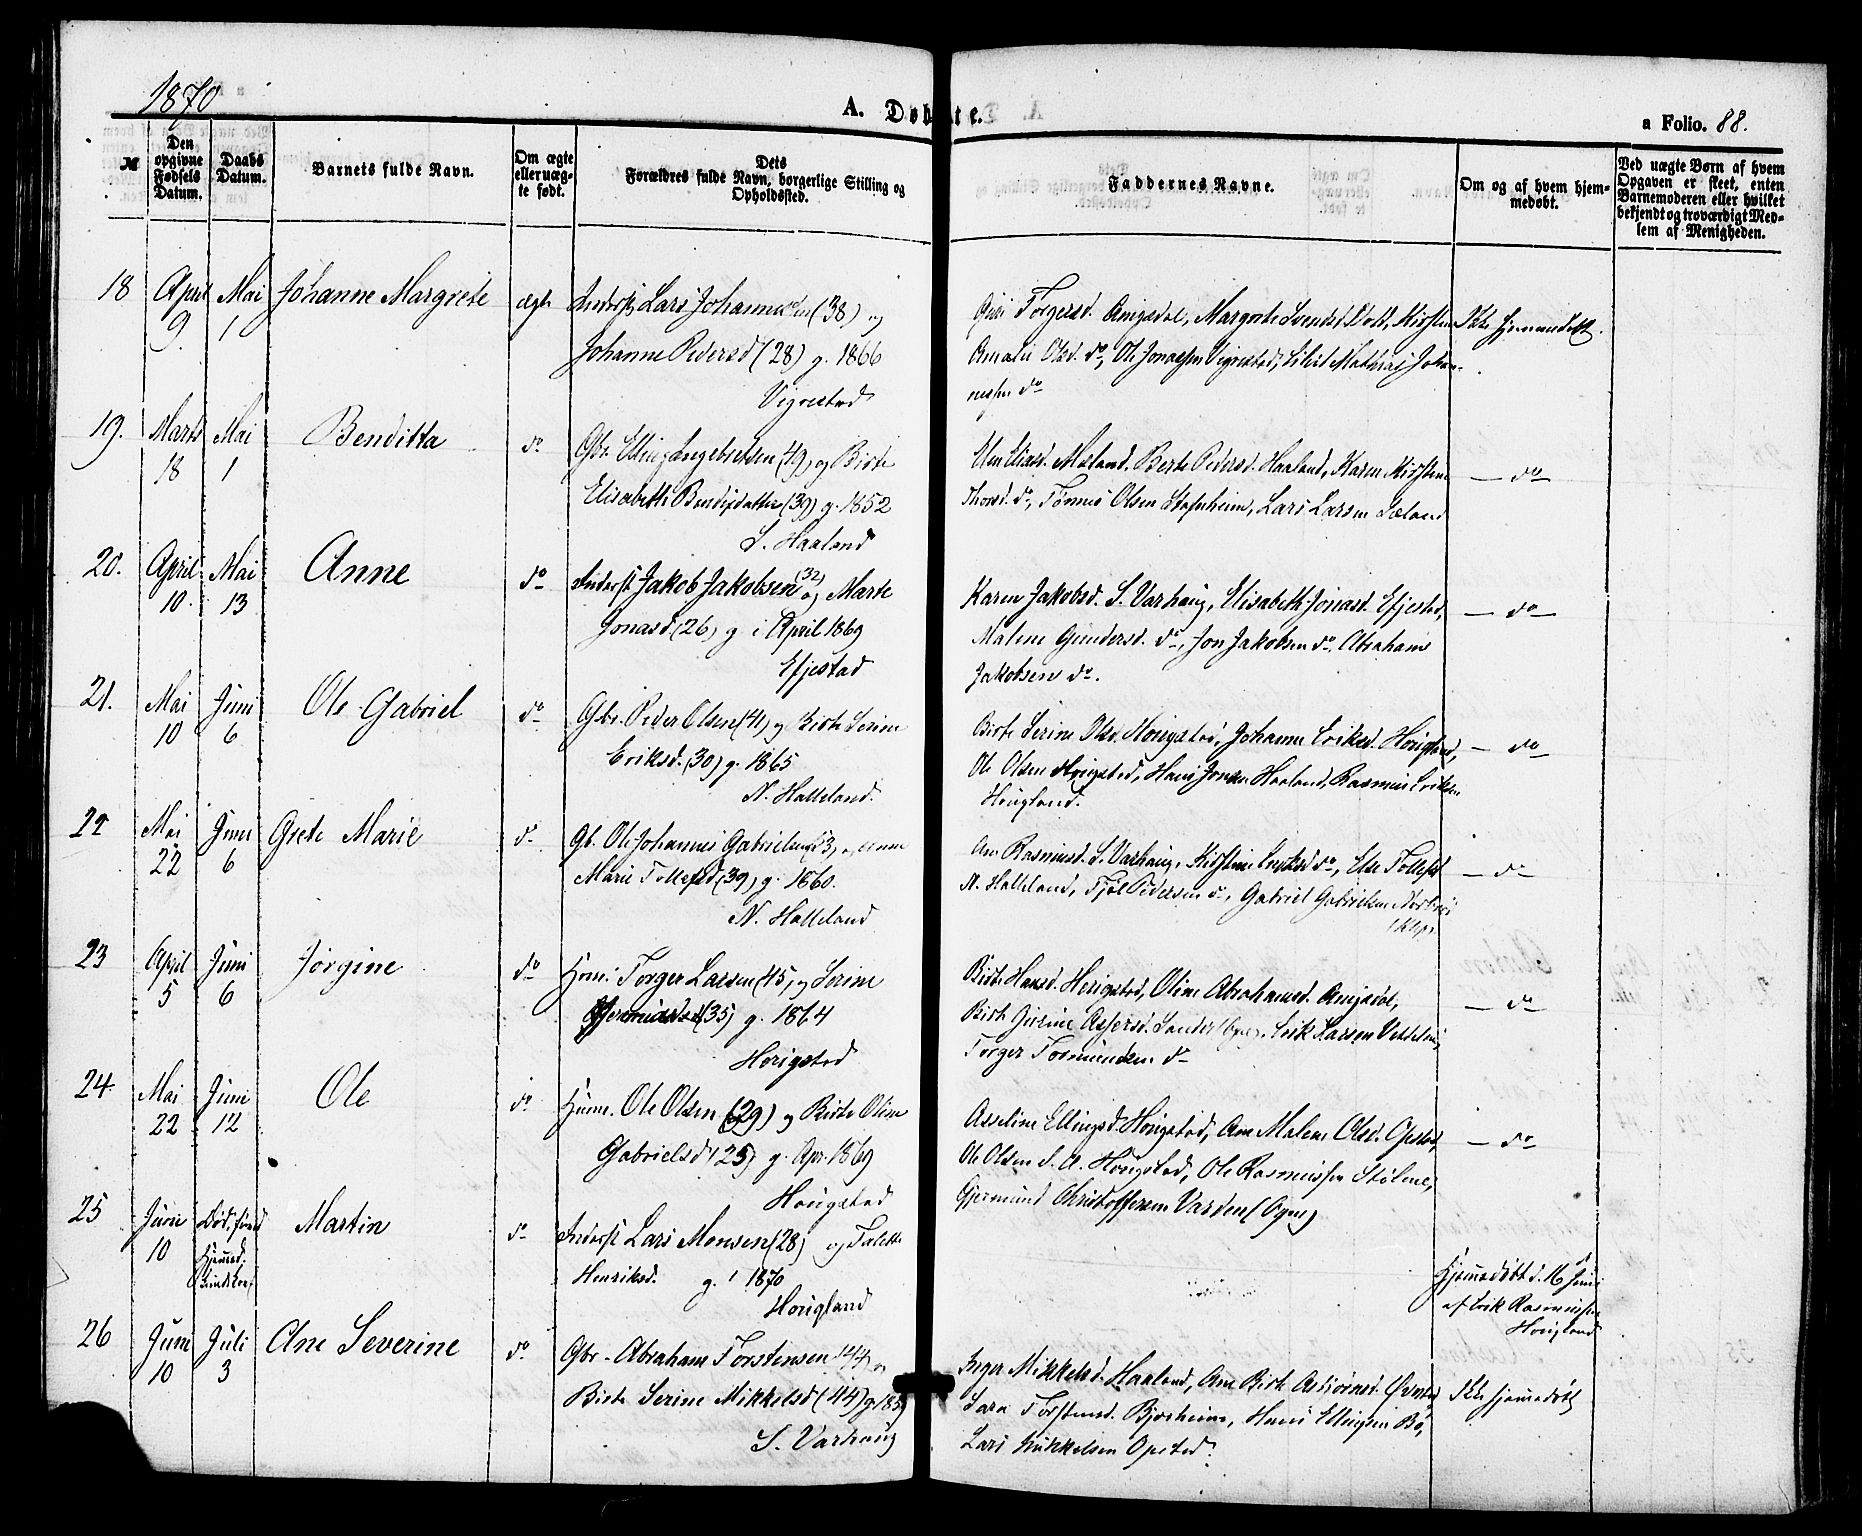 1870
A. Døbte.
a Folio. 88.
№
Den opgivne Fødsels Datum.
Daabs Datum.
Barnets fulde Navn.
Om ægte eller uægte født.
Dets Forældres fulde Navn, borgerlige Stilling og Opholdssted.
Faddernes Navne.
Om og af hvem hjemmedøbt.
Ved uægte Børn af hvem Opgaven er skeet, enten Barnemoderen eller hvilket bekjendt og troværdigt Medlem af Menigheden.
18 April 9 Mai 1 Johanne Margrete ægte
Inderst Lars Johannesen (38) og
Johanne Pedersd (28) g. 1866
Vigrestad
Torgersd. Anigsdal, Margrete Svendsd. Kirstine
Amalie Olsd. do, Ole Jonassen Vigrestad, Mathias Johan-
nessen do
Ikke hjemmedøbt.
19. Marts 18 Mai 1 Benditta do
Gbr. Elling Ingebretsen (49) og Birte
Elisabeth Bendixdatter (39) g. 1852
S. Haaland
Eliasd. Mæland, Berte Pedersd. Haaland, Karen Kirstine
Thorsd. do, Tønnes Olsen Stofnheim, Lars Larsen Søland
— do —
20. April 10. Mai 13 Anne do
Inderst Jakob Jakobsen (32) og Marte
Jonasd (26) g i April 1869
Efjestad
Karen Jakobsd. S. Varhaug, Elisabeth Jonasd. Efjestad,
Malene Gundersd. do, Jon Jakobsen do. Abraham
Jakobsen do.
— do —
21. Mai 10 Juni 6 Ole Gabriel do
Gbr. Peder Olsen (41) og Birte Serine
Eriksd. (30) g. 1865
N. Halleland.
Birte Serine Olsd. Hougstad, Johanne Eriksd. Hougland,
Ole Olsen Hougstad, Hans Jonsen Haaland, Rasmus Eriksen
Hougland.
— do
22 Mai 22 Juni 6 Grete Marie do
Gb. Ole Johannes Gabrielsen og Anne
Marie Tollefsd (39) g. 1860.
N. Halleland
Ane Rasmusd. S. Varhaug, Kirstine do, Else Tollefsd
N. Halleland, Pedersen do, Gabriel Gabrielsen
Klep
— do
23 April 5 Juni 6 Jørgine do
Huusm. Torger Larsen (45) og Serine
(35) g. 1864
Hougstad
Birte Hansd. Hougstad, Oline Abrahamsd. Anigsdal,
Birte Assersd. (Ogne), Erik Larsen
Torger Tormundsen do
— do
24. Mai 22 Juni 12 Ole do
Huusm. Ole Olsen (29) og Birte Oline
Gabrielsd (25) g. Apr. 1869
Hougstad
Asseline Ellingsd. Hougstad, Ane Malene Olsd. Opstad,
Ole Olsen S. A. Hougstad, Ole Rasmussen Stølene,
Gjermund Christoffersen Varden (Ogne)
— do —
25 Juni 10 Død, forud hjemmed. Martin do
Inderst Lars Monsen (28) og Talette
Henriksd. g. 1870
Hougland
Hjemmedøbt d. 16 Juni
af Erik Rasmussen
Hougland
26 Juni 10 Juli 3 Ane Severine do
Gbr. Abraham Torstensen (44) og
Birte Serine Mikkelsd (44) g. 1859
S. Varhaug
Inger Mikkelsd. Haaland, Ane Birte Asbiørnsd.
Sara Torstensd. Bjorheim, Hans Ellingsen Bø,
Lars Mikkelsen Opsted.
Ikke hjemmedøbt